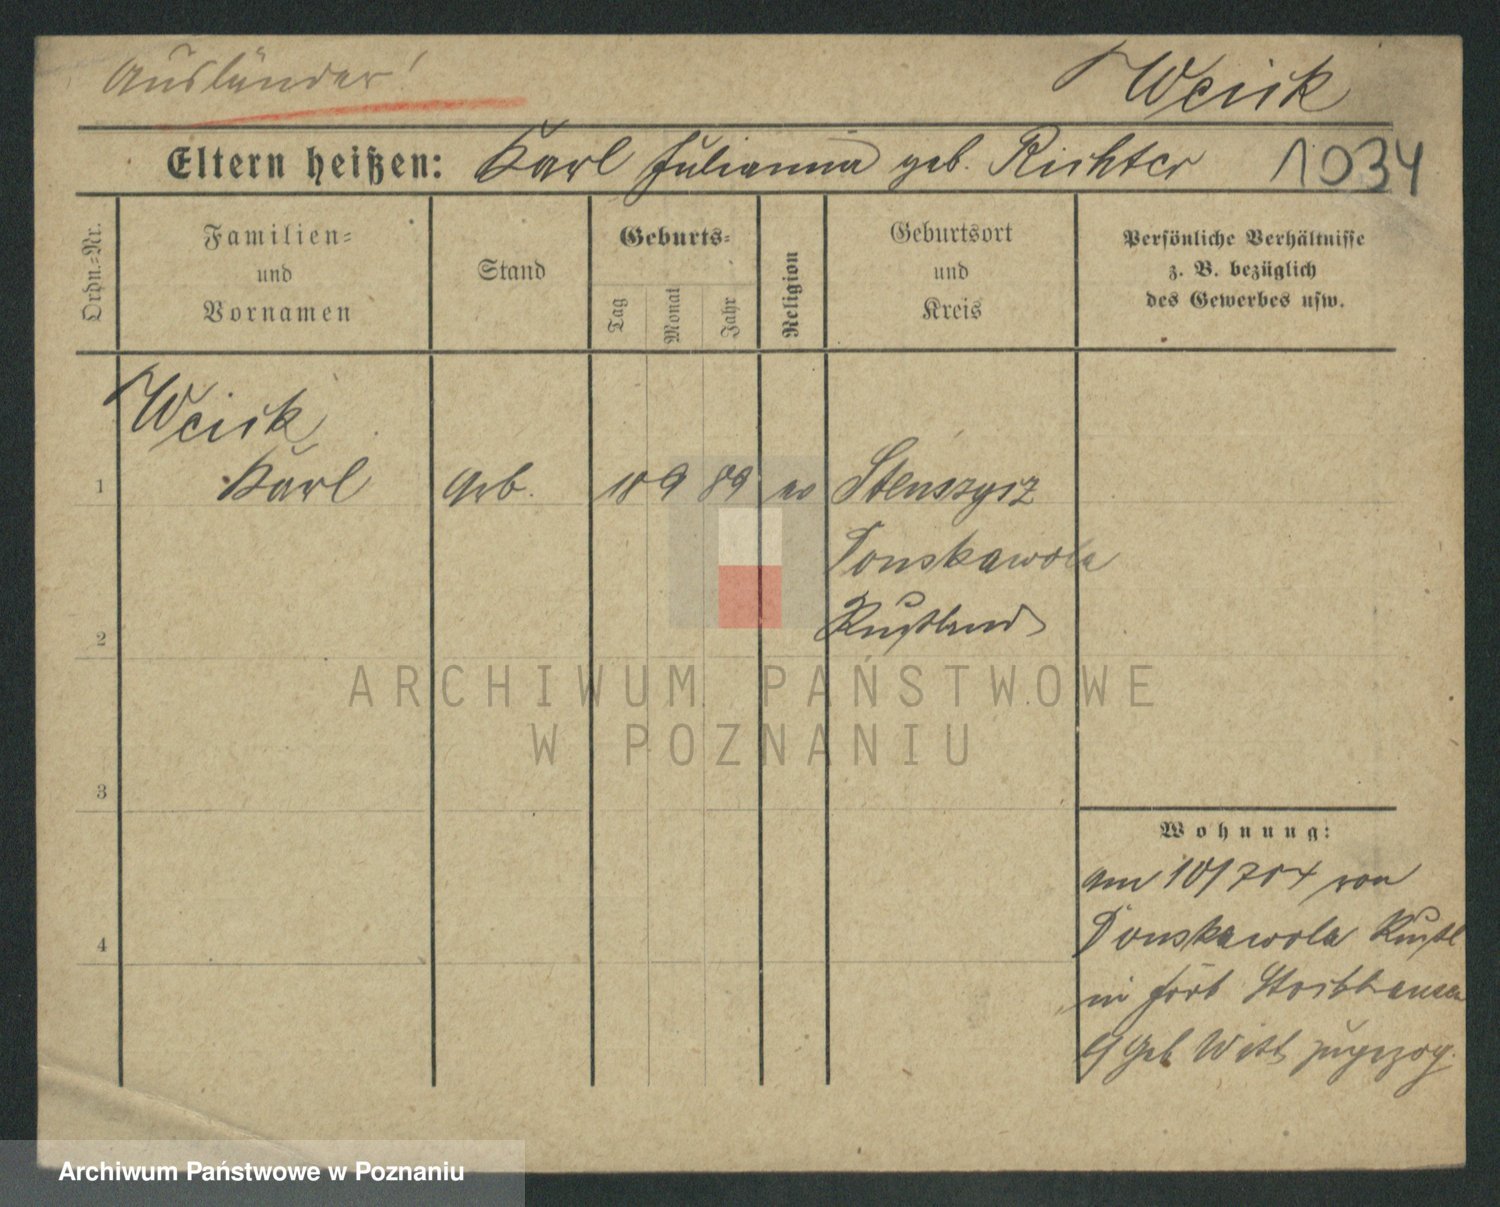 Ausländer!
Weick
Eltern heißen: Karl Julianna geb. Richter
1034
Ordn.=Nr.
Familien=
und
Vornamen
Stand
Geburts=
Tag
Monat
Jahr
Religion
Geburtsort
und
Kreis
Persönliche Verhältnisse
z. B. bezüglich
des Gewerbes usw.
Weick
1 Karl 9 89
Donskawola
Rußland
2
3
4
Wohnung:
am von
Donskawola Rußl
in
Witt zugezog.
ARCHIWUM PAŃSTWOWE
W POZNANIU
Archiwum Państwowe w Poznaniu